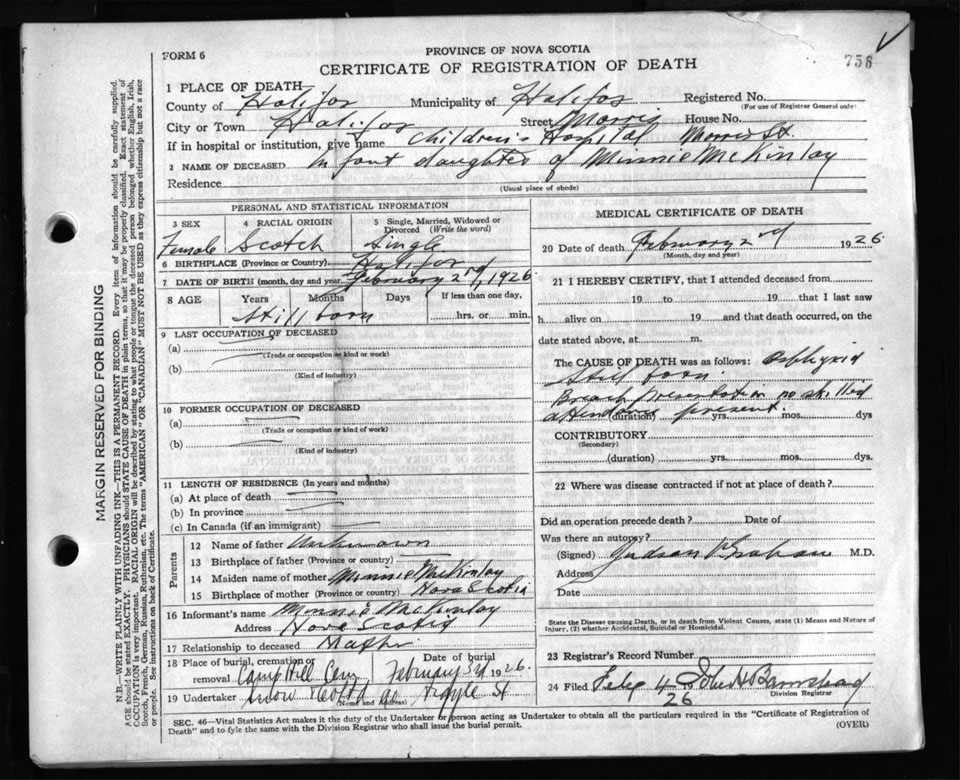 PROVINCE OF NOVA SCOTIA
FORM 6
CERTIFICATE OF REGISTRATION OF DEATH
756
1 PLACE OF DEATH
County of Halifax Municipality of Halifax Registered No.
(For use of Registrar General only)
City or Town Halifax Street Morris House No.
If in hospital or institution, give name Children's Hospital Morris St.
2 NAME OF DECEASED Infant daughter of Minnie McKinlay
Residence
(Usual place of abode)
PERSONAL AND STATISTICAL INFORMATION
3 SEX 4 RACIAL ORIGIN 5 Single, Married, Widowed or Divorced (Write the word)
Female Scotch Single
6 BIRTHPLACE (Province or Country) Halifax
7 DATE OF BIRTH (month, day and year) February 2nd, 1926
8 AGE Years Months Days If less than one day,
Still born hrs. or min.
9 LAST OCCUPATION OF DECEASED
(a)
(Trade or occupation or kind of work)
(b)
(Kind of industry)
10 FORMER OCCUPATION OF DECEASED
(a)
(Trade or occupation or kind of work)
(b)
(Kind of industry)
11 LENGTH OF RESIDENCE (In years and months)
(a) At place of death
(b) In province
(c) In Canada (if an immigrant)
Parents
12 Name of father Unknown
13 Birthplace of father (Province or country)
14 Maiden name of mother Minnie McKinlay
15 Birthplace of mother (Province or country) Nova Scotia
16 Informant's name Minnie McKinlay
Address Nova Scotia
17 Relationship to deceased Mother
18 Place of burial, cremation or removal Camp Hill Cem Date of burial February 3rd 1926.
19 Undertaker Snow & Co Ltd 90 Argyle St
(Name and Address)
MEDICAL CERTIFICATE OF DEATH
20 Date of death February 2nd 1926
(Month, day and year)
21 I HEREBY CERTIFY, that I attended deceased from
19 to 19 that I last saw
h alive on 19 and that death occurred, on the
date stated above, at m.
The CAUSE OF DEATH was as follows: Asphyxia
Still born
Breach presentation no skilled
attendance present.
(duration) yrs. mos. dys
CONTRIBUTORY
(Secondary)
(duration) yrs. mos. dys.
22 Where was disease contracted if not at place of death?
Did an operation precede death? Date of
Was there an autopsy?
(Signed) Judson Graham M.D.
Address
Date
State the Disease causing Death, or in death from Violent Causes, state (1) Means and Nature of
Injury, (2) whether Accidental, Suicidal or Homicidal.
23 Registrar's Record Number
24 Filed Feb 4 1926 John H Barnstead
Division Registrar
SEC. 46—Vital Statistics Act makes it the duty of the Undertaker or person acting as Undertaker to obtain all the particulars required in the "Certificate of Registration of
Death" and to fyle the same with the Division Registrar who shall issue the burial permit.
(OVER)
MARGIN RESERVED FOR BINDING
N.B.—WRITE PLAINLY WITH UNFADING INK—THIS IS A PERMANENT RECORD. Every item of information should be carefully supplied.
AGE should be stated EXACTLY. PHYSICIANS should STATE CAUSE OF DEATH in plain terms, so that it may be properly classified. Exact statement of
OCCUPATION is very important. RACIAL ORIGIN will be described by stating to what people or tongue the deceased person belonged whether English, Irish,
Scotch, French, German, Russian, Ruthenian, etc. The terms "AMERICAN" OR "CANADIAN" MUST NOT BE USED as they express citizenship but not a race
or people. See instructions on back of Certificate.